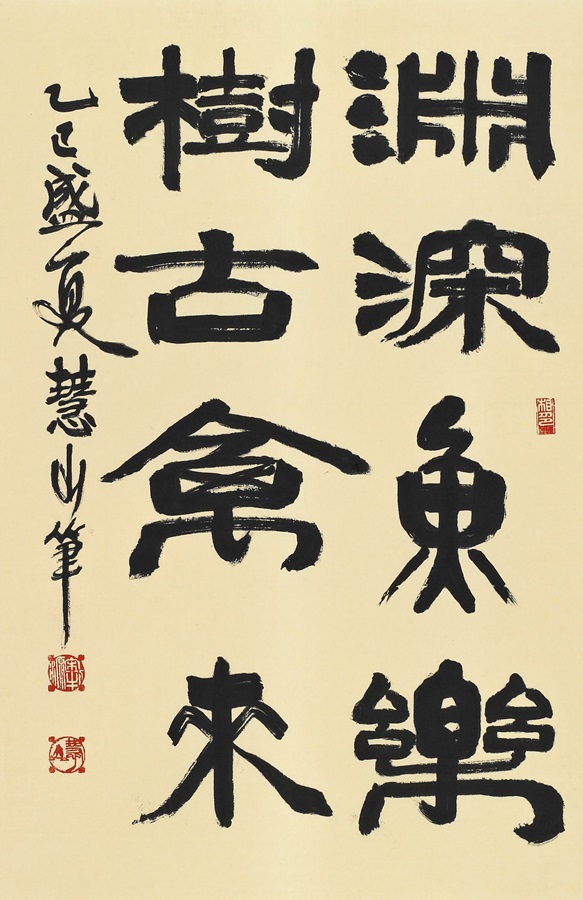 淵深魚樂
樹古禽來
乙巳盛夏慧山筆